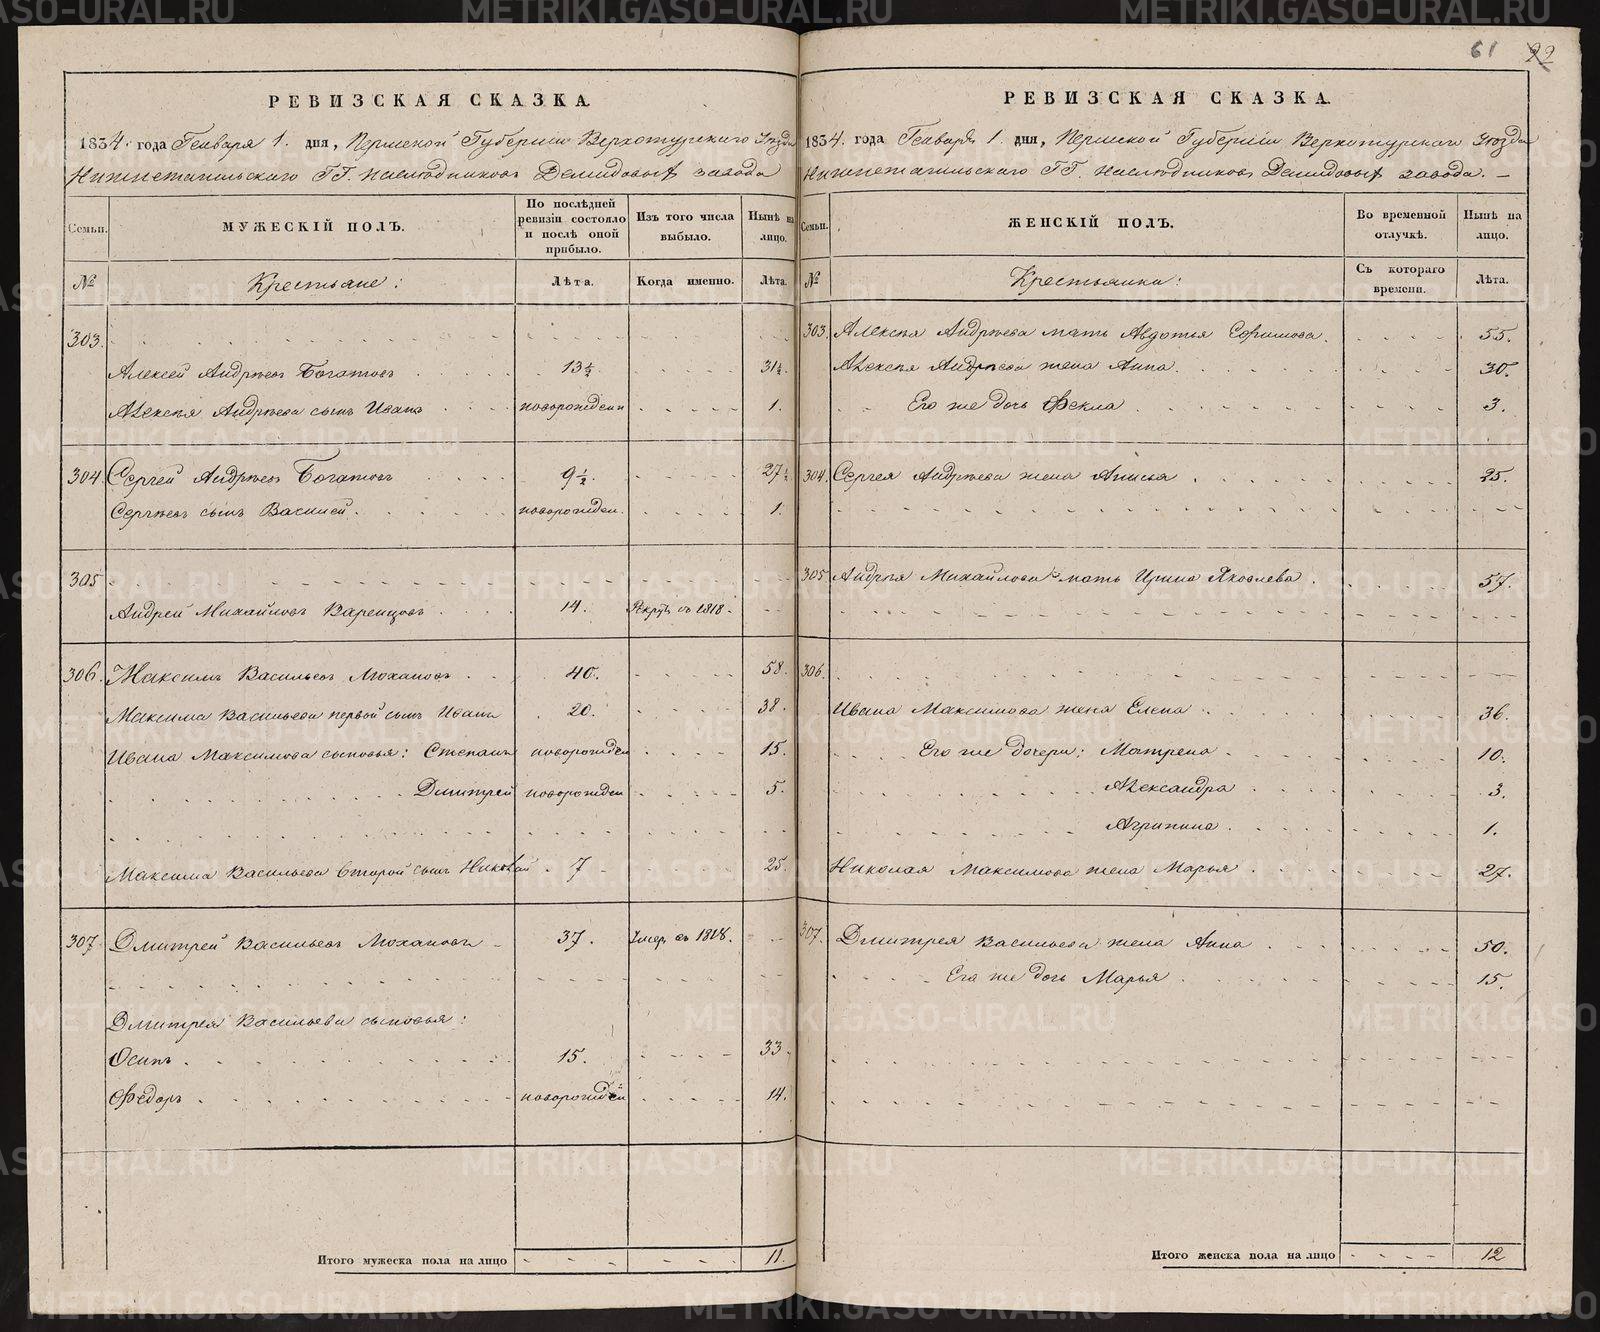 61 22
РЕВИЗСКАЯ СКАЗКА.
1834. года Генваря 1. дня, Пермской Губерніи Верхотурскаго Уѣзда
Нижнетагильскаго ГГ. Наслѣдниковъ Демидовыхъ завода
Семьи.
МУЖЕСКІЙ ПОЛЪ.
По послѣдней ревизіи состояло и послѣ оной прибыло.
Изъ того числа выбыло.
Нынѣ на лицо.
№ Крестьяне: Лѣта. Когда именно. Лѣта.
303.
Алексей Андрѣевъ Богатовъ 13½ 31½.
Алексѣя Андрѣева сынъ Иванъ новорожден 1.
304. Сергей Андрѣевъ Богатовъ 9½. 27½
Сергѣевъ сынъ Василей. новорожден. 1.
305
Андрей Михайловъ Варенцовъ 14. Рекрут. съ 1818.
306. Максимъ Васильевъ Мохановъ 40. 58.
Максима Васильева первой сынъ Иванъ 20. 38.
Ивана Максимова сыновья: Степанъ новорожден 15.
Дмитрей новорожден 5.
Максима Васильева второй сынъ Николай 7 25.
307 Дмитрей Васильевъ Мохановъ 37. Умер. съ 1818.
Дмитрея Васильева сыновья:
Осипъ 15. 33.
Ѳедоръ новорожден 14.
Итого мужеска пола на лицо 11.
РЕВИЗСКАЯ СКАЗКА.
1834. года Генваря 1. дня, Пермской Губерніи Верхотурскаго Уѣзда
Нижнетагильскаго ГГ. Наслѣдниковъ Демидовыхъ завода.
Семьи.
ЖЕНСКІЙ ПОЛЪ.
Во временной отлучкѣ.
Нынѣ на лицо.
№ Крестьянки: Съ котораго времени. Лѣта.
303. Алексѣя Андрѣева мать Авдотья Ефимова. 55.
Алексѣя Андрѣева жена Анна. 30.
Его же дочь Ѳекла 3.
304. Сергея Андрѣева жена Анисья 25.
305 Андрѣя Михайлова мать Ирина Яковлева 57.
306.
Ивана Максимова жена Елена 36.
Его же дочери: Матрена 10.
Александра 3.
Агрипина 1.
Николая Максимова жена Марья 27.
307. Дмитрея Васильева жена Анна 50.
Его же дочь Марья 15.
Итого женска пола на лицо 12
METRIKI.GASO-URAL.RU